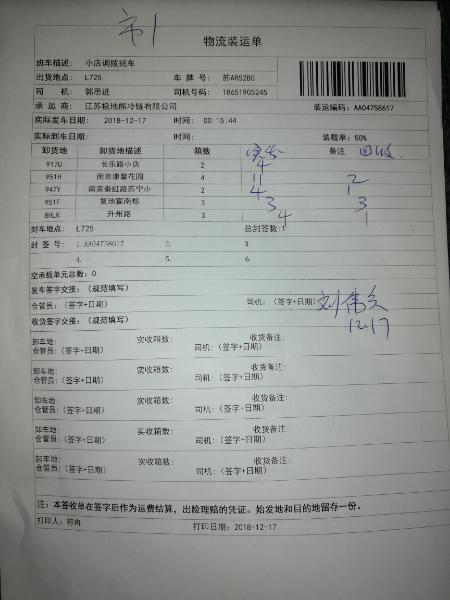 市1
物流装运单
班车描述: 小店调拨班车
出货地点: L725 车牌号: 苏AR52B0
司机: 郭思进 司机号码: 18651905245
承运商: 江苏极地熊冷链有限公司 装运编码: AA04758617
实际发车日期: 2018-12-17 时间: 00:15:44
实际到车日期: 时间: 装载率: 50%
卸货地 卸货地描述 箱数 实发 备注 回收
917U 长乐路小店 2 4
951H 南京康馨花园 4 11 2
947Y 南京秦虹路苏宁小 2 4 1
951F 复地宴南都 3 3 3
BHLK 升州路 3 4 1
封车地点: L725 总封签数:1
封签号: 1.AA04758617 2. 3.
4. 5. 6.
空承载单元总数: 0
发车签字交接: (规范填写)
仓管员: (签字+日期) 司机: (签字+日期) 刘
12.17
收货签字交接: (规范填写)
卸车地: 实收箱数: 收货备注:
仓管员: (签字+日期) 司机: (签字+日期)
卸车地: 实收箱数: 收货备注:
仓管员: (签字+日期) 司机: (签字+日期)
卸车地: 实收箱数: 收货备注:
仓管员: (签字+日期) 司机: (签字+日期)
卸车地: 实收箱数: 收货备注:
仓管员: (签字+日期) 司机: (签字+日期)
卸车地: 实收箱数: 收货备注:
仓管员: (签字+日期) 司机: (签字+日期)
注: 本签收单在签字后作为运费结算, 出险理赔的凭证。始发地和目的地留存一份。
打印人: 符冉 打印日期: 2018-12-17